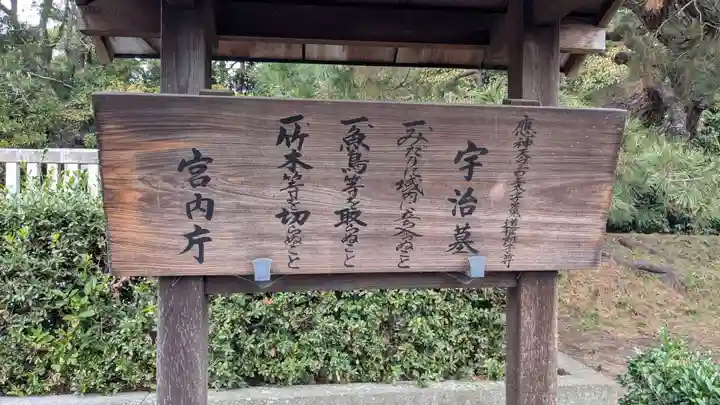 應神天皇皇太子菟道稚郎子尊
宇治墓
一、みだりに域内に立ち入らぬこと
一、魚鳥等を取らぬこと
一、竹木等を切らぬこと
宮内庁